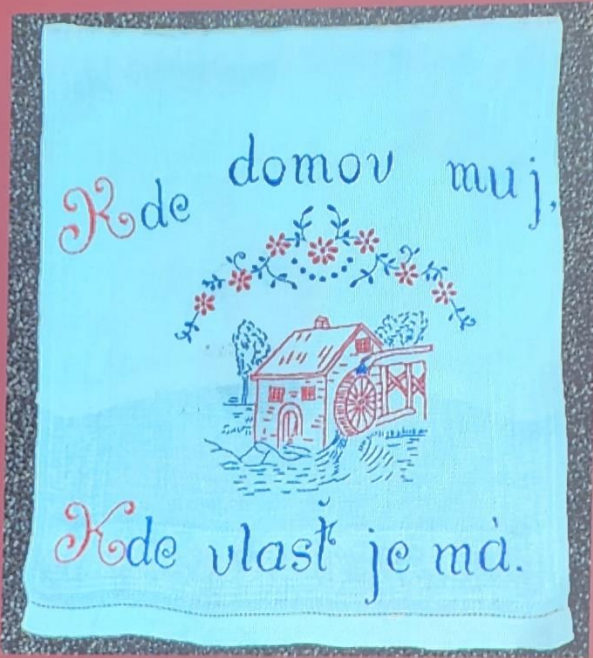 Kde domov muj,
Kde vlasť je mà.